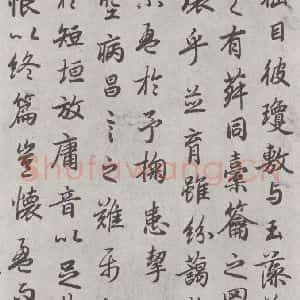 目彼瓊敷与玉藻
之有菽同橐籥之罔
壤乎並育雖紛藹
盈於予掬患挈
空病昌言之難
於短垣放庸音以足
恨以終篇豈懷盈
Shufawang.Cn